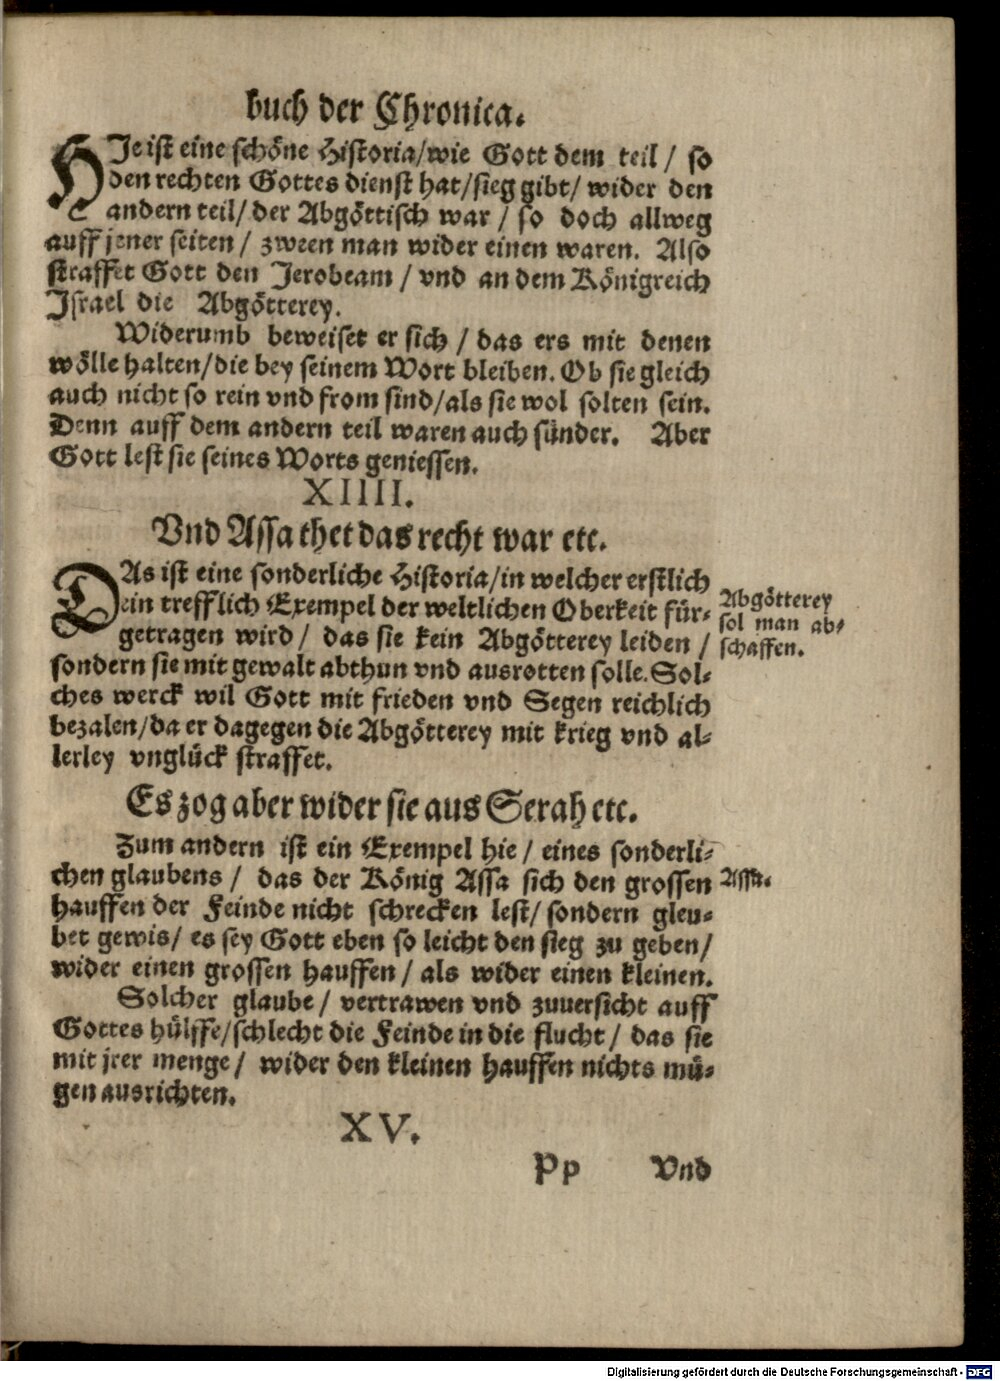 buch der Chronica.
HJe ist eine schöne Historia/wie Gott dem teil / so
den rechten Gottes dienst hat/sieg gibt/ wider den
andern teil/ der Abgöttisch war / so doch allweg
auff jener seiten / zween man wider einen waren. Also
straffet Gott den Jerobeam / vnd an dem Königreich
Jsrael die Abgötterey.
Widerumb beweiset er sich / das ers mit denen
wölle halten/die bey seinem Wort bleiben. Ob sie gleich
auch nicht so rein vnd from sind/als sie wol solten sein.
Denn auff dem andern teil waren auch sünder. Aber
Gott lest sie seines Worts geniessen.
XIIII.
Vnd Assa thet das recht war etc.
DAs ist eine sonderliche Historia/in welcher erstlich
ein trefflich Exempel der weltlichen Oberkeit für-
getragen wird / das sie kein Abgötterey leiden /
sondern sie mit gewalt abthun vnd ausrotten solle. Sol-
ches werck wil Gott mit frieden vnd Segen reichlich
bezalen/da er dagegen die Abgötterey mit krieg vnd al-
lerley vnglück straffet.
Abgötterey
sol man ab-
schaffen.
Es zog aber wider sie aus Serah etc.
Zum andern ist ein Exempel hie / eines sonderli-
chen glaubens / das der König Assa sich den grossen
hauffen der Feinde nicht schrecken lest/ sondern gleu-
bet gewis/ es sey Gott eben so leicht den sieg zu geben/
wider einen grossen hauffen / als wider einen kleinen.
Assa.
Solcher glaube / vertrawen vnd zuuersicht auff
Gottes hülffe/schlecht die Feinde in die flucht / das sie
mit jrer menge / wider den kleinen hauffen nichts mü-
gen ausrichten.
XV.
Pp Vnd
Digitalisierung gefördert durch die Deutsche Forschungsgemeinschaft - DFG